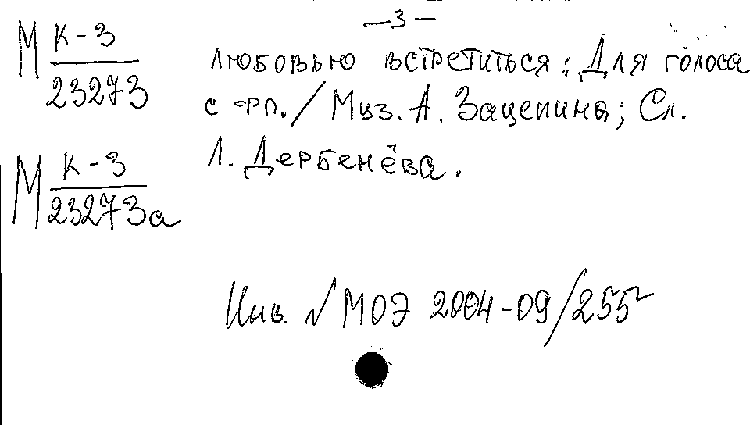 — 3 —
М К-3
23273
любовью встретиться: Для голоса
с ф-п. / Муз. А. Зацепина; Сл.
Л. Дербенёва.
М К-3
23273а
Инв. № МОЭ 2004-09/255